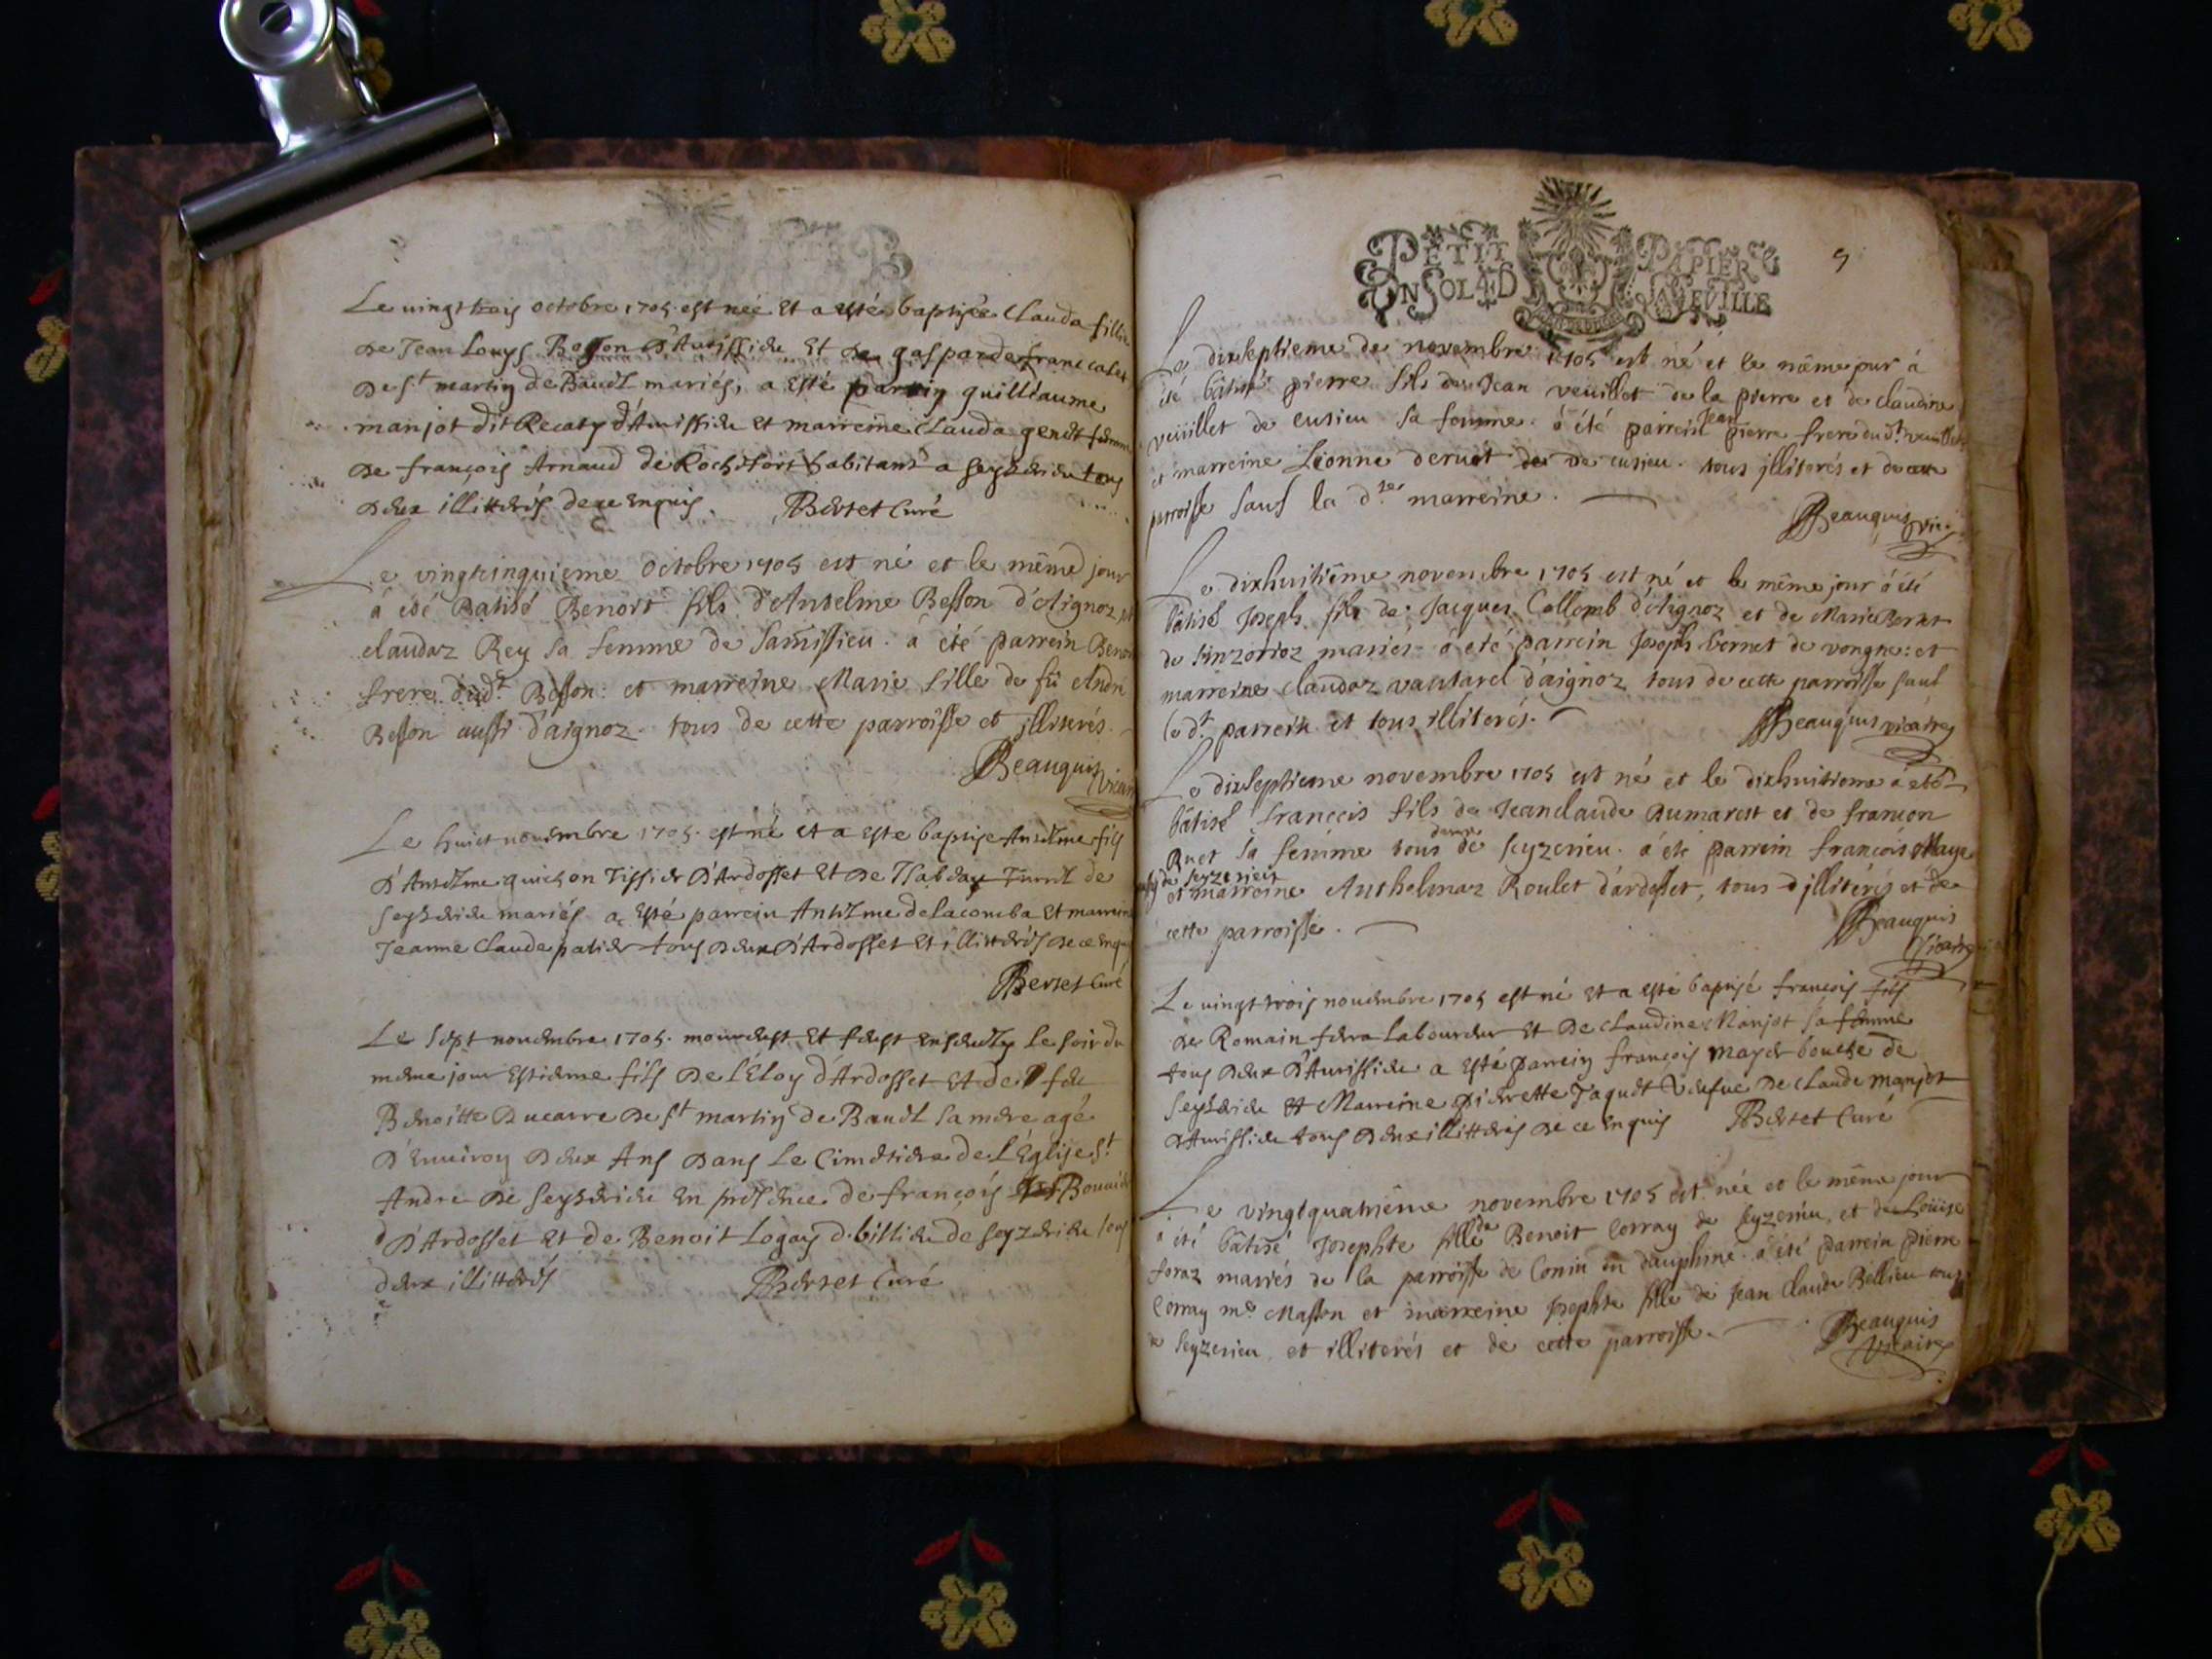 Le vingt trois octobre 1705. est née Et a esté baptisée Clauda fillie
De Jean Louys Besson D'Avissieu Et De gasparde francalet
De St martin de Bavel mariés, a esté parrin guilleaume
manjot dit Recaty d'Avissieu et marreine Clauda genet femme
De françois Arnaud de Rochefort habitant a seyserieu tous
Deux illitterés de ce Enquis. Bertet Curé
Le vingtcinquieme Octobre 1705 est né et le même jour
á été Batisé Benoit fils d'Antelme Besson d'Aignoz et
claudaz Rey sa femme de samissieu. á été parrein Benoit
frere dud.t Besson: et marreine Marie fille de fû André
Besson aussi d'aignoz. tous de cette parroisse et jlliterés.
Beauquis Vicaire
Le huict novembre 1705. est né et a este baptise Antelme fils
D'Antelme guichon Tissier D'Ardosset Et De Isabeau Turrel de
seyserieu mariés a Esté parrein Antelme delacomba Et marreine
Jeanne Claude patier tous deux D'Ardosset Et illitterés De ce Enquis
Bertet Curé
Le Sept novembre 1705. mourust Et fust Ensevely Le soir du
mesme jour Estienne fils De L'Eloy d'Ardosset Et de fue
Benoitte Ducarre De St martin de Bavel sa mere agé
D'Environ Deux Ans Dans Le Cimetiere de L'Église St
Andre De seyserieu En presence de françois Bouvier
D'Ardosset Et de Benoit Logoy d. billieu de seyzerieu tous
deux illitterés Bertet Curé
PETIT PAPIER
UN SOL 4 D LA FEVILLE
9
Le dixseptieme de novembre 1705 est né et le même jour á
été bâtisé pierre fils de Jean veuillet de la pierre et de claudine
veuillet de cusieu sa femme. á été parrein Jean pierre frere dud.t veuillet
et marreine Lionne deruet de cusieu. tous jlliterés et de cette
parroisse sauf la d.te marreine.
Beauquis vic.
Le dixhuitiême novembre 1705 est né et le même jour á été
bâtisé Joseph fils de Jacques Collomb d'Aignoz et de Marie Bernet
de sinzorioz mariés. á été parrein Joseph bernet de vongne: et
marreine claudaz vautarel d'aignoz tous de cette parroisse sauf
le d.t parrein et tous illiterés.
Beauquis vicaire
Le dixseptieme novembre 1705 est né et le dixhuitieme á été
bâtisé françois fils de Jeanclaude Dumarest et de françon
Ruet sa femme tous deux de seyzerieu. á été parrein françois Maye
de seyzerieu
et marreine Anthelmaz Roulet d'ardosset, tous jlliterés et de
cette parroisse.
Beauquis
Vicaire
Le vingt trois novembre 1705 est né Et a esté baptisé françois fils
de Romain fera Labourdeur Et De Claudine Manjot sa femme
tous deux D'Avrissieu a esté parrein françois mayer bouche de
Seyserieu Et Marreine pierrette Jaquet Veufue De Claude manjot
D'Avrissieu tous Deux illitterés De ce Enquis Bertet Curé
Le vingtquatriême novembre 1705 est née et le même jour
á été bâtisé Josephte fille de Benoit Corray de seyzerieu, et de Loüise
foraz mariés de la parroisse de Conin en dauphiné. á été parrein pierre
Corray m.e Masson et marreine Josephte fille de Jean Claude Bellieu tous
de seyzerieu, et illiterés et de cette parroisse.
Beauquis
Vicaire